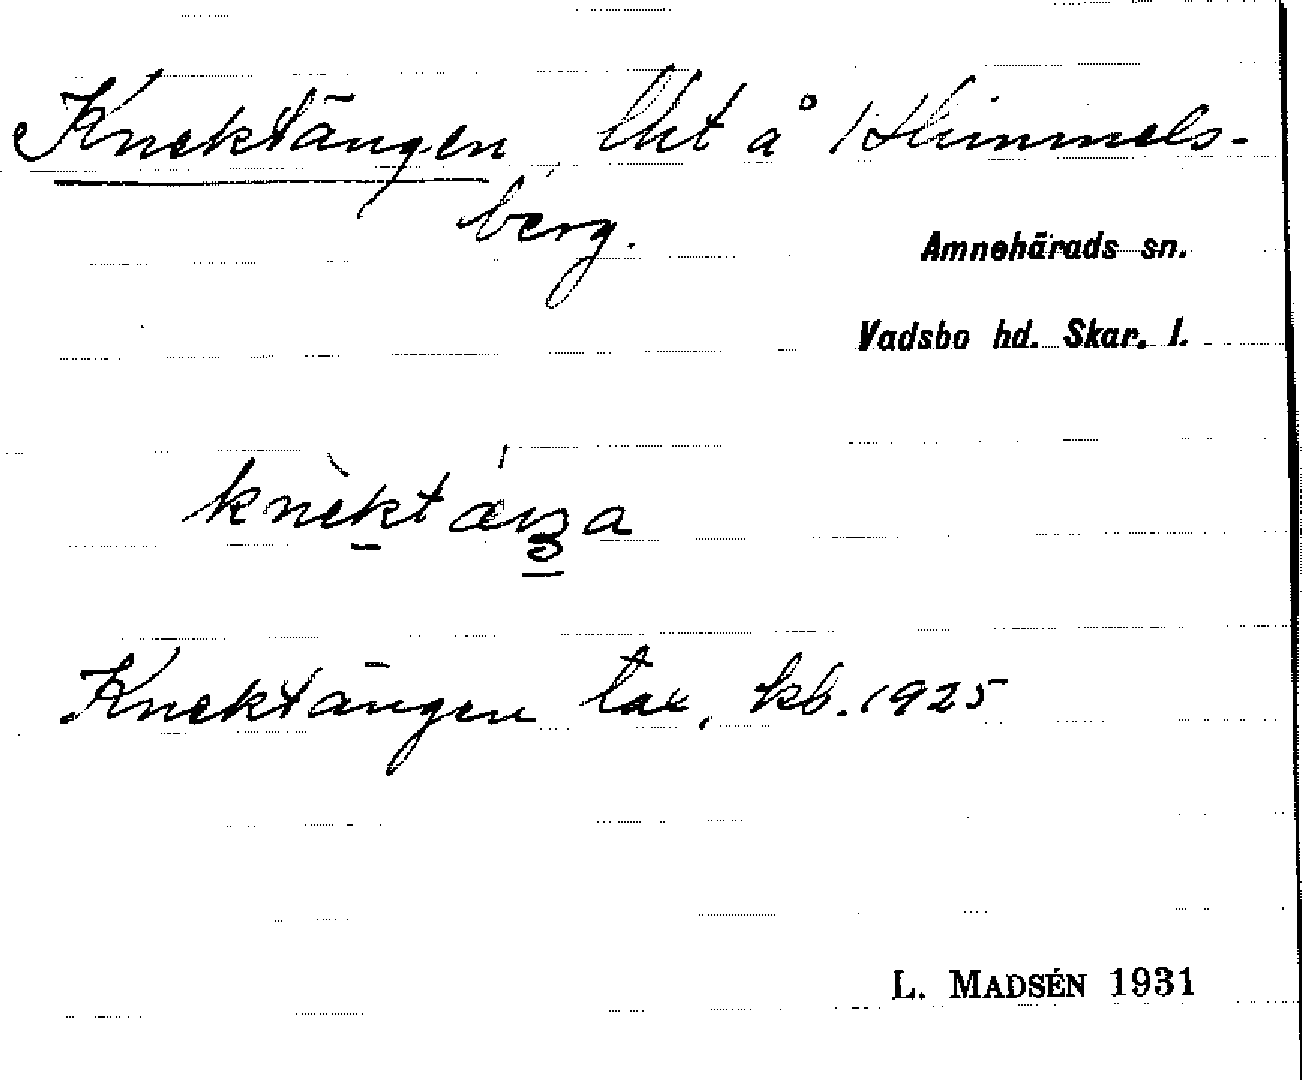 Knektängen, lht å 1 Himmels-
berg.
Amnehärads sn.
Vadsbo hd. Skar. l.
Knektängen tax. kb. 1925
L. MADSÉN 1931